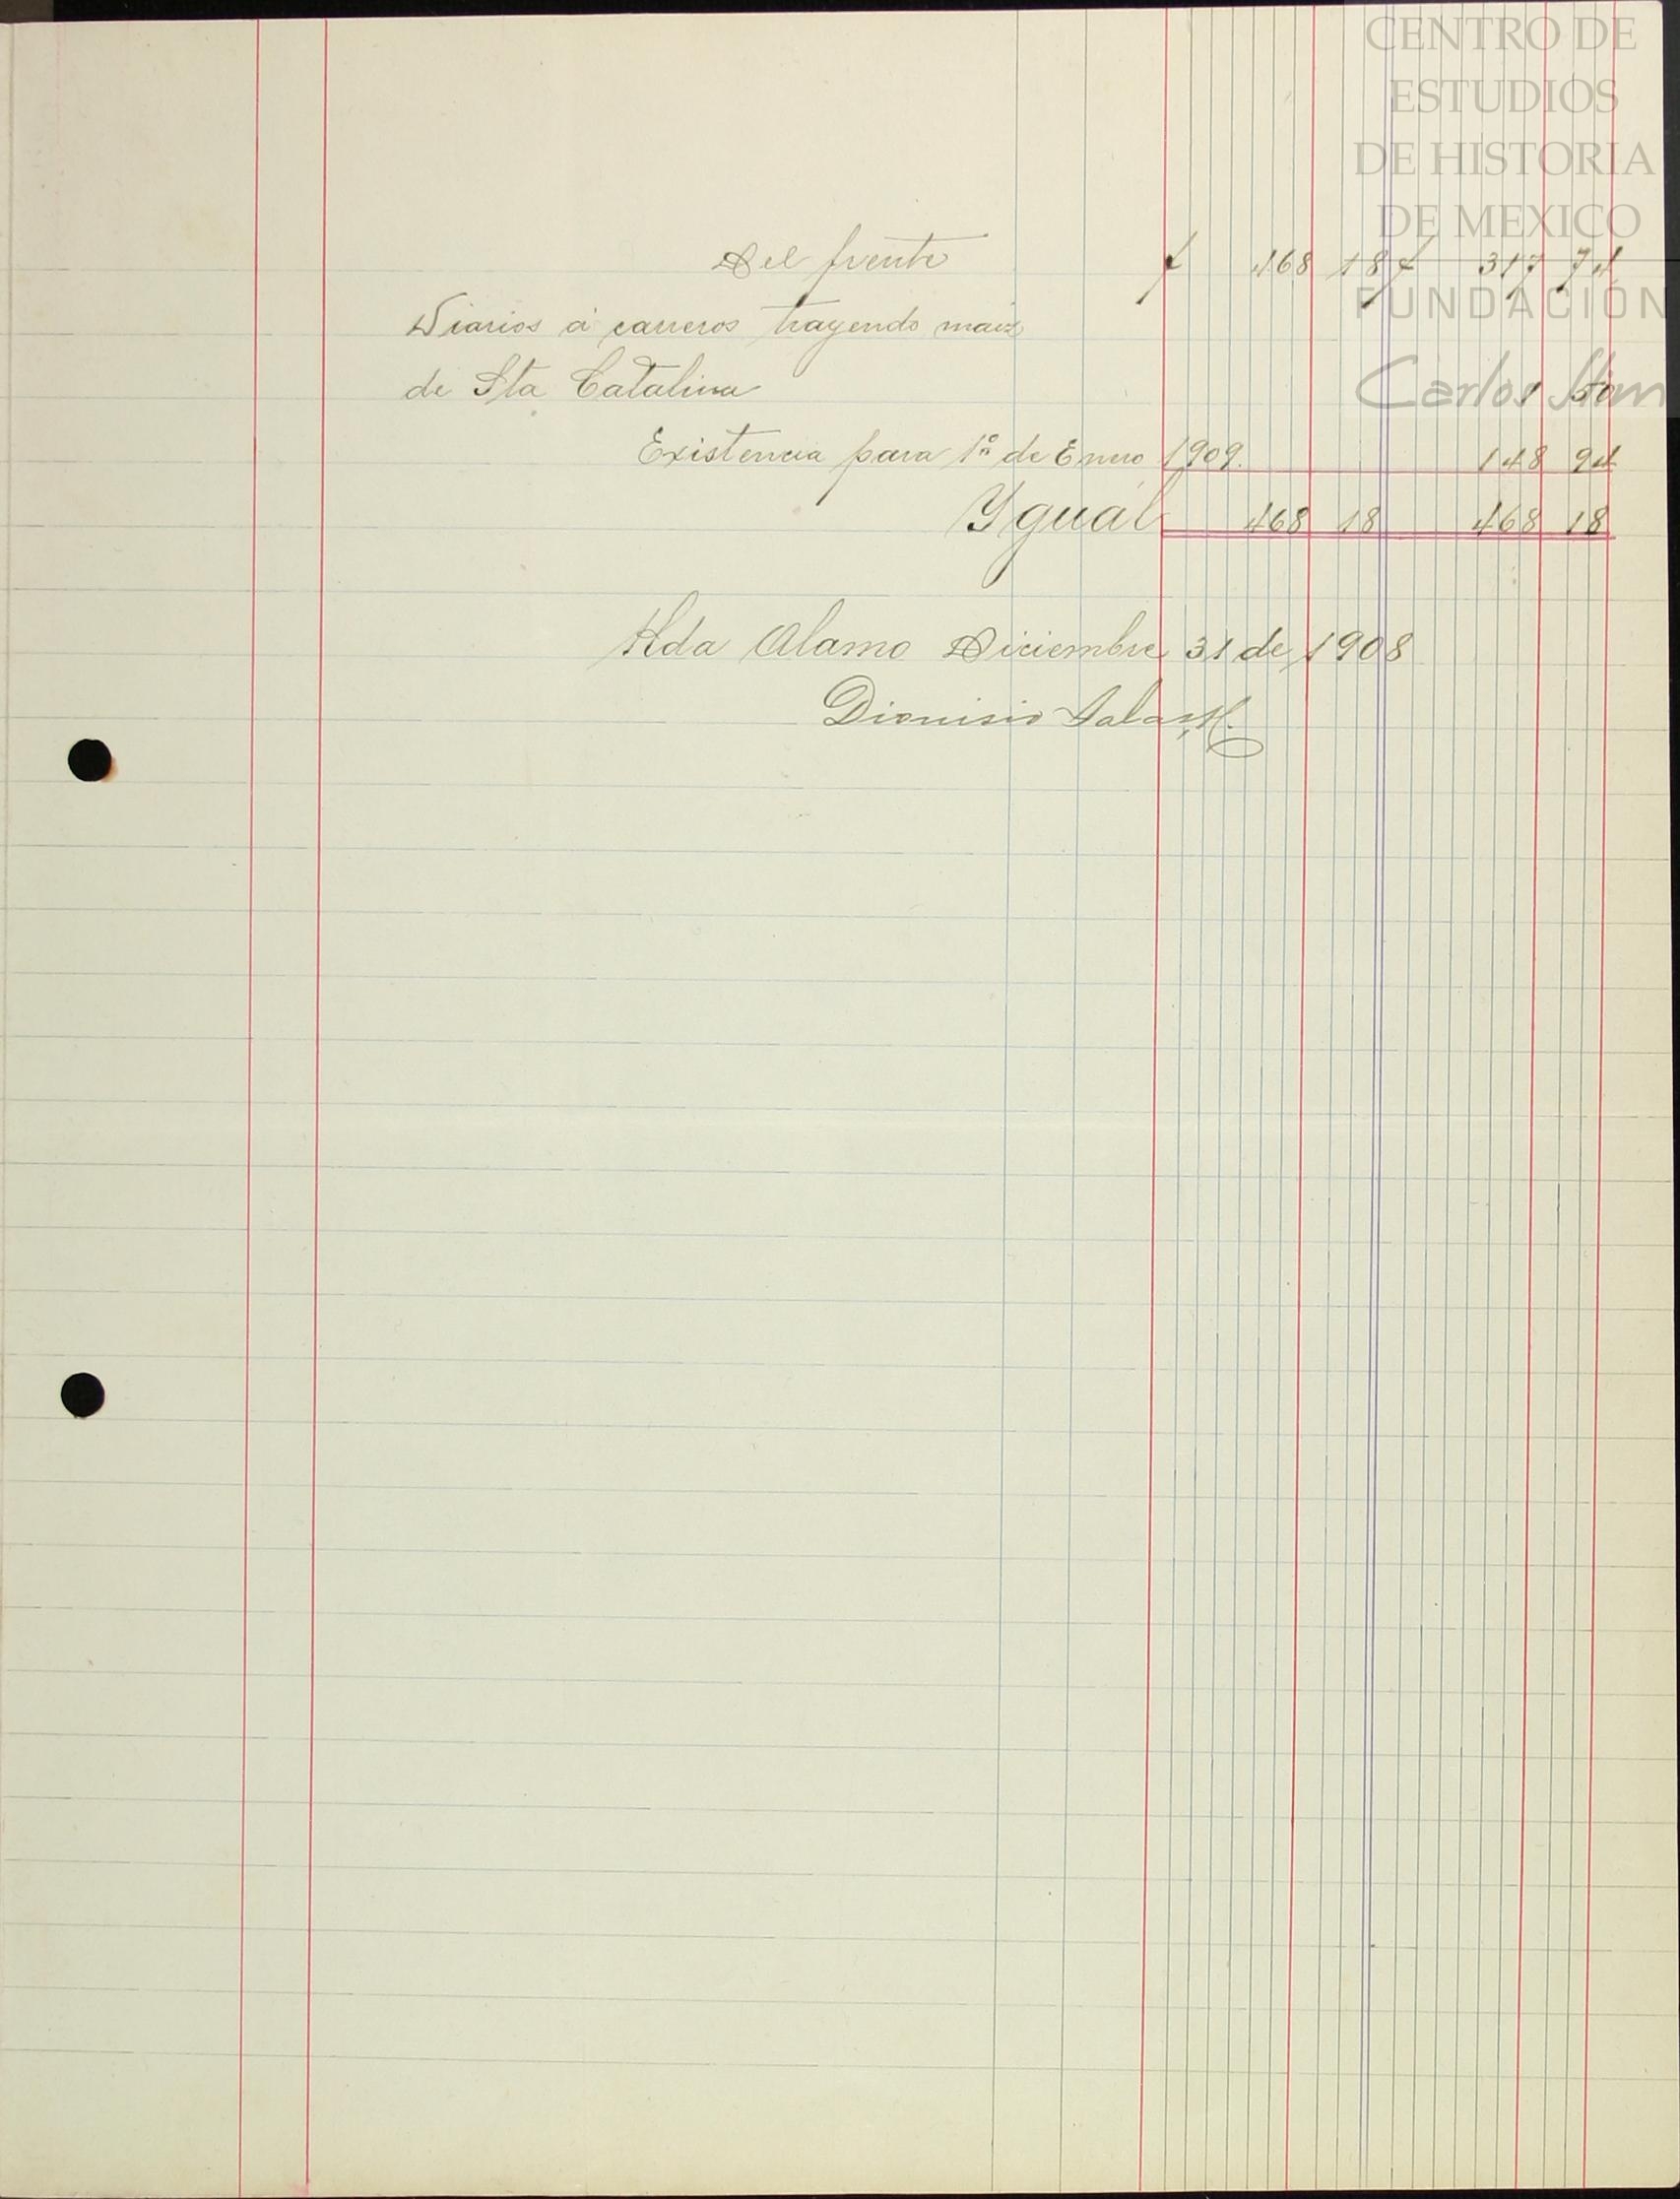 CENTRO DE
ESTUDIOS
DE HISTORIA
DE MEXICO
FUNDACIÓN
Carlos Slim
Del frente $ 468 18 $ 317 74
Diarios á carreros trayendo maiz
de Sta Catalina 1 50
Existencia para 1º de Enero 1909. 148 94
Ygual 468 18 468 18
Hda Alamo Diciembre 31 de 1908
Dionisio Salas H.